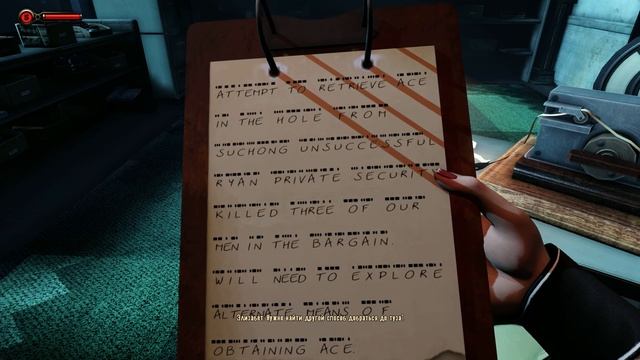 ATTEMPT TO RETRIEVE ACE
IN THE HOLE FROM
SUCHONG UNSUCCESSFUL
RYAN PRIVATE SECURITY
KILLED THREE OF OUR
MEN IN THE BARGAIN.
WILL NEED TO EXPLORE
ALTERNATE MEANS OF
Элизабет: Нужно найти другой способ добраться до туза.
OBTAINING ACE.